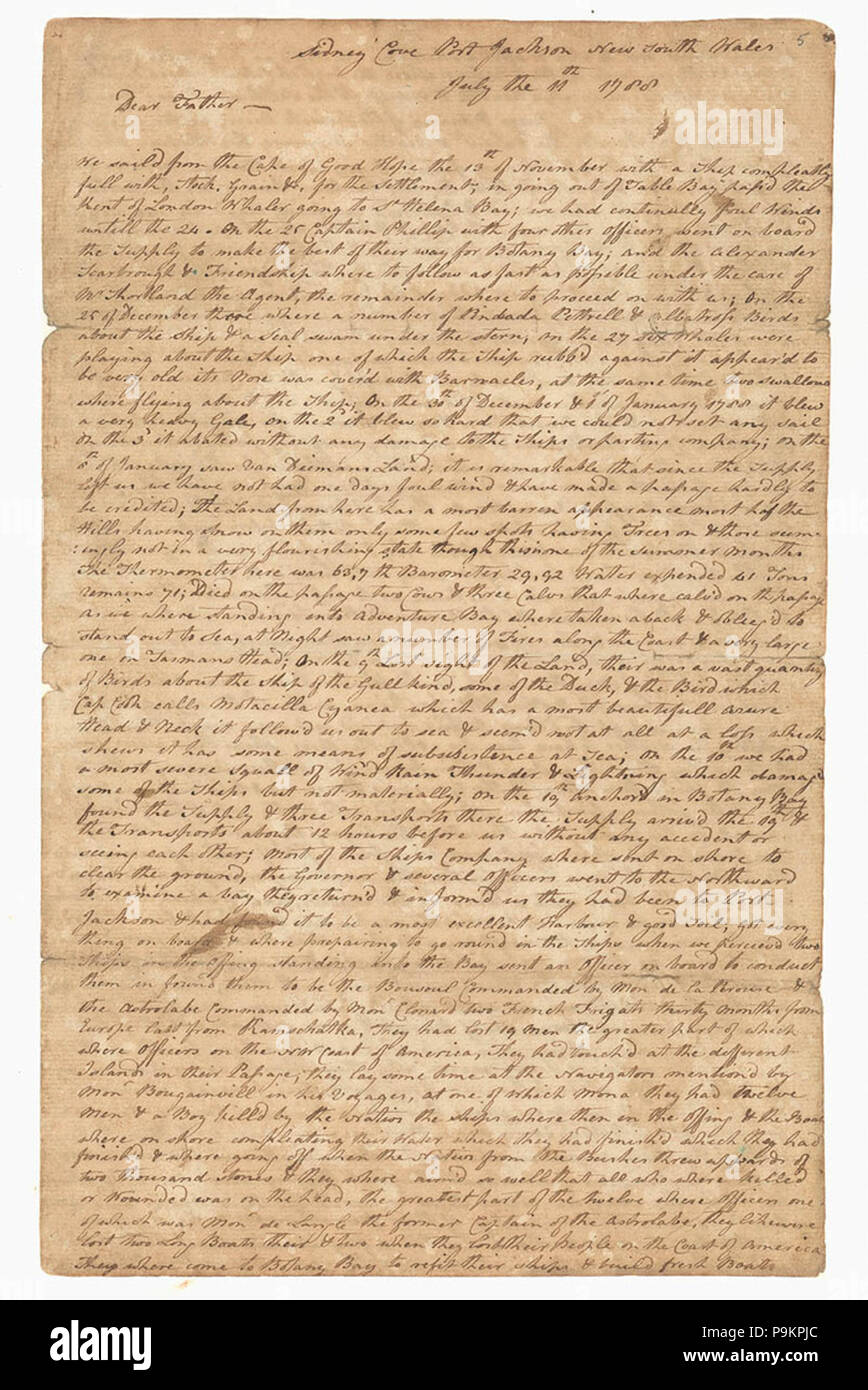 5
Sidney Cove Port Jackson New South Wales
July the 11th 1788
Dear Father —
We sail'd from the Cape of Good Hope the 13th of November with a Ship compleatly
full with, Stock, Grain &c, for the Settlement; in going out of Table Bay pass'd the
Kent of London Whaler going to St Helena Bay; we had continually foul Winds
untill the 24. On the 25 Captain Phillip with four other officers went on board
the Supply to make the best of their way for Botany Bay; and the Alexander
Scarbrough & Friendship where to follow as fast as possible under the care of
Mr Shortland the Agent, the remainder where to proceed on with us; On the
25 of December there where a number of Pindada Pettrell & Albatross Birds
about the Ship & a Seal swam under the stern; on the 27 six Whales were
playing about the Ship one of which the Ship rubb'd against it appear'd to
be very old its Nose was cover'd with Barnacles, at the same time two swallows
where flying about the Ship; On the 30th of December & 1st of January 1788 it blew
a very heavy Gale, on the 2d it blew so hard that we could not set any sail
on the 3d it abated without any damage to the Ships or parting company; on the
of January saw Van Diemans Land; it is remarkable that since the Supply
left us we have not had one days foul wind & have made a passage hardly to
be credited; The Land from here has a most barren appearance most of the
Hills having snow on them only some few spots having Trees on & those seem=
:ingly not in a very flourishing state though this is one of the summer months
The Thermometer here was 63,7 th Barometer 29,92 Water expended 41 Tons
remains 71; Died on the passage two Cows & three Calves that where calv'd on the passage
as we where standing into Adventure Bay where taken aback & oblig'd to
stand out to Sea, at Night saw a number of Fires along the Coast & a very large
one on Tasmans Head; On the 9th Lost sight of the Land, their was a vast quantity
of Birds about the Ship of the Gull kind, some of the Duck, & the Bird which
Cap Cook calls Motacilla Cyanea which has a most beautifull azure
Head & Neck it follow'd us out to sea & seem'd not at all at a loss which
shews it has some means of subsistence at Sea; on the 10th we had
a most severe Squall of Wind Rain Thunder & Lightning which damag'd
some of the Ships but not materially; on the 19th anchor'd in Botany Bay
found the Supply & three Transports there the Supply arriv'd the & 
the Transports about 12 hours before us without any accident or
seeing each other; Most of the Ships Company where sent on shore to
clear the ground, the Governor & several Officers went to the Northward
to examine a bay they return'd & inform'd us they had been to Port
Jackson & had found it to be a most excellent Harbour & good Soil; got every
thing on board & where preparing to go round in the Ships when we perceiv'd two
Ships in the Offing standing into the Bay sent an Officer on board to conduct
them in found them to be the Bousoul Commanded by Monr de la Perouse &
the Astrolabe Commanded by Monr Clonard two French Frigats thirty months from
Europe last from Kamschatka, They had lost 19 Men the greater part of which
where Officers on the NW Coast of America, They had touch'd at the different
Islands in their Passage; they lay some time at the Navigators mention'd by
Monr Bougainvill in his Voyages, at one of which Mona they had twelve
Men & a Boy kill'd by the Natives the Ships where then in the Offing & the Boats
where on shore compleating their Water which they had finish'd which they had
finish'd & where going off when the Natives from the Bushes threw upwards of
two Thousand Stones & they where aim'd so well that all who where killed
or Wounded was on the head, the greatest part of the twelve where Officers one
of which was Monr de Langle the former Captain of the Astrolabe, they likewise
lost two Long Boats their & two when they lost their People on the Coast of America
They where come to Botany Bay to refit their Ships & build fresh Boats
alamy
alamy
alamy
Image ID: P9KPJC
www.alamy.com